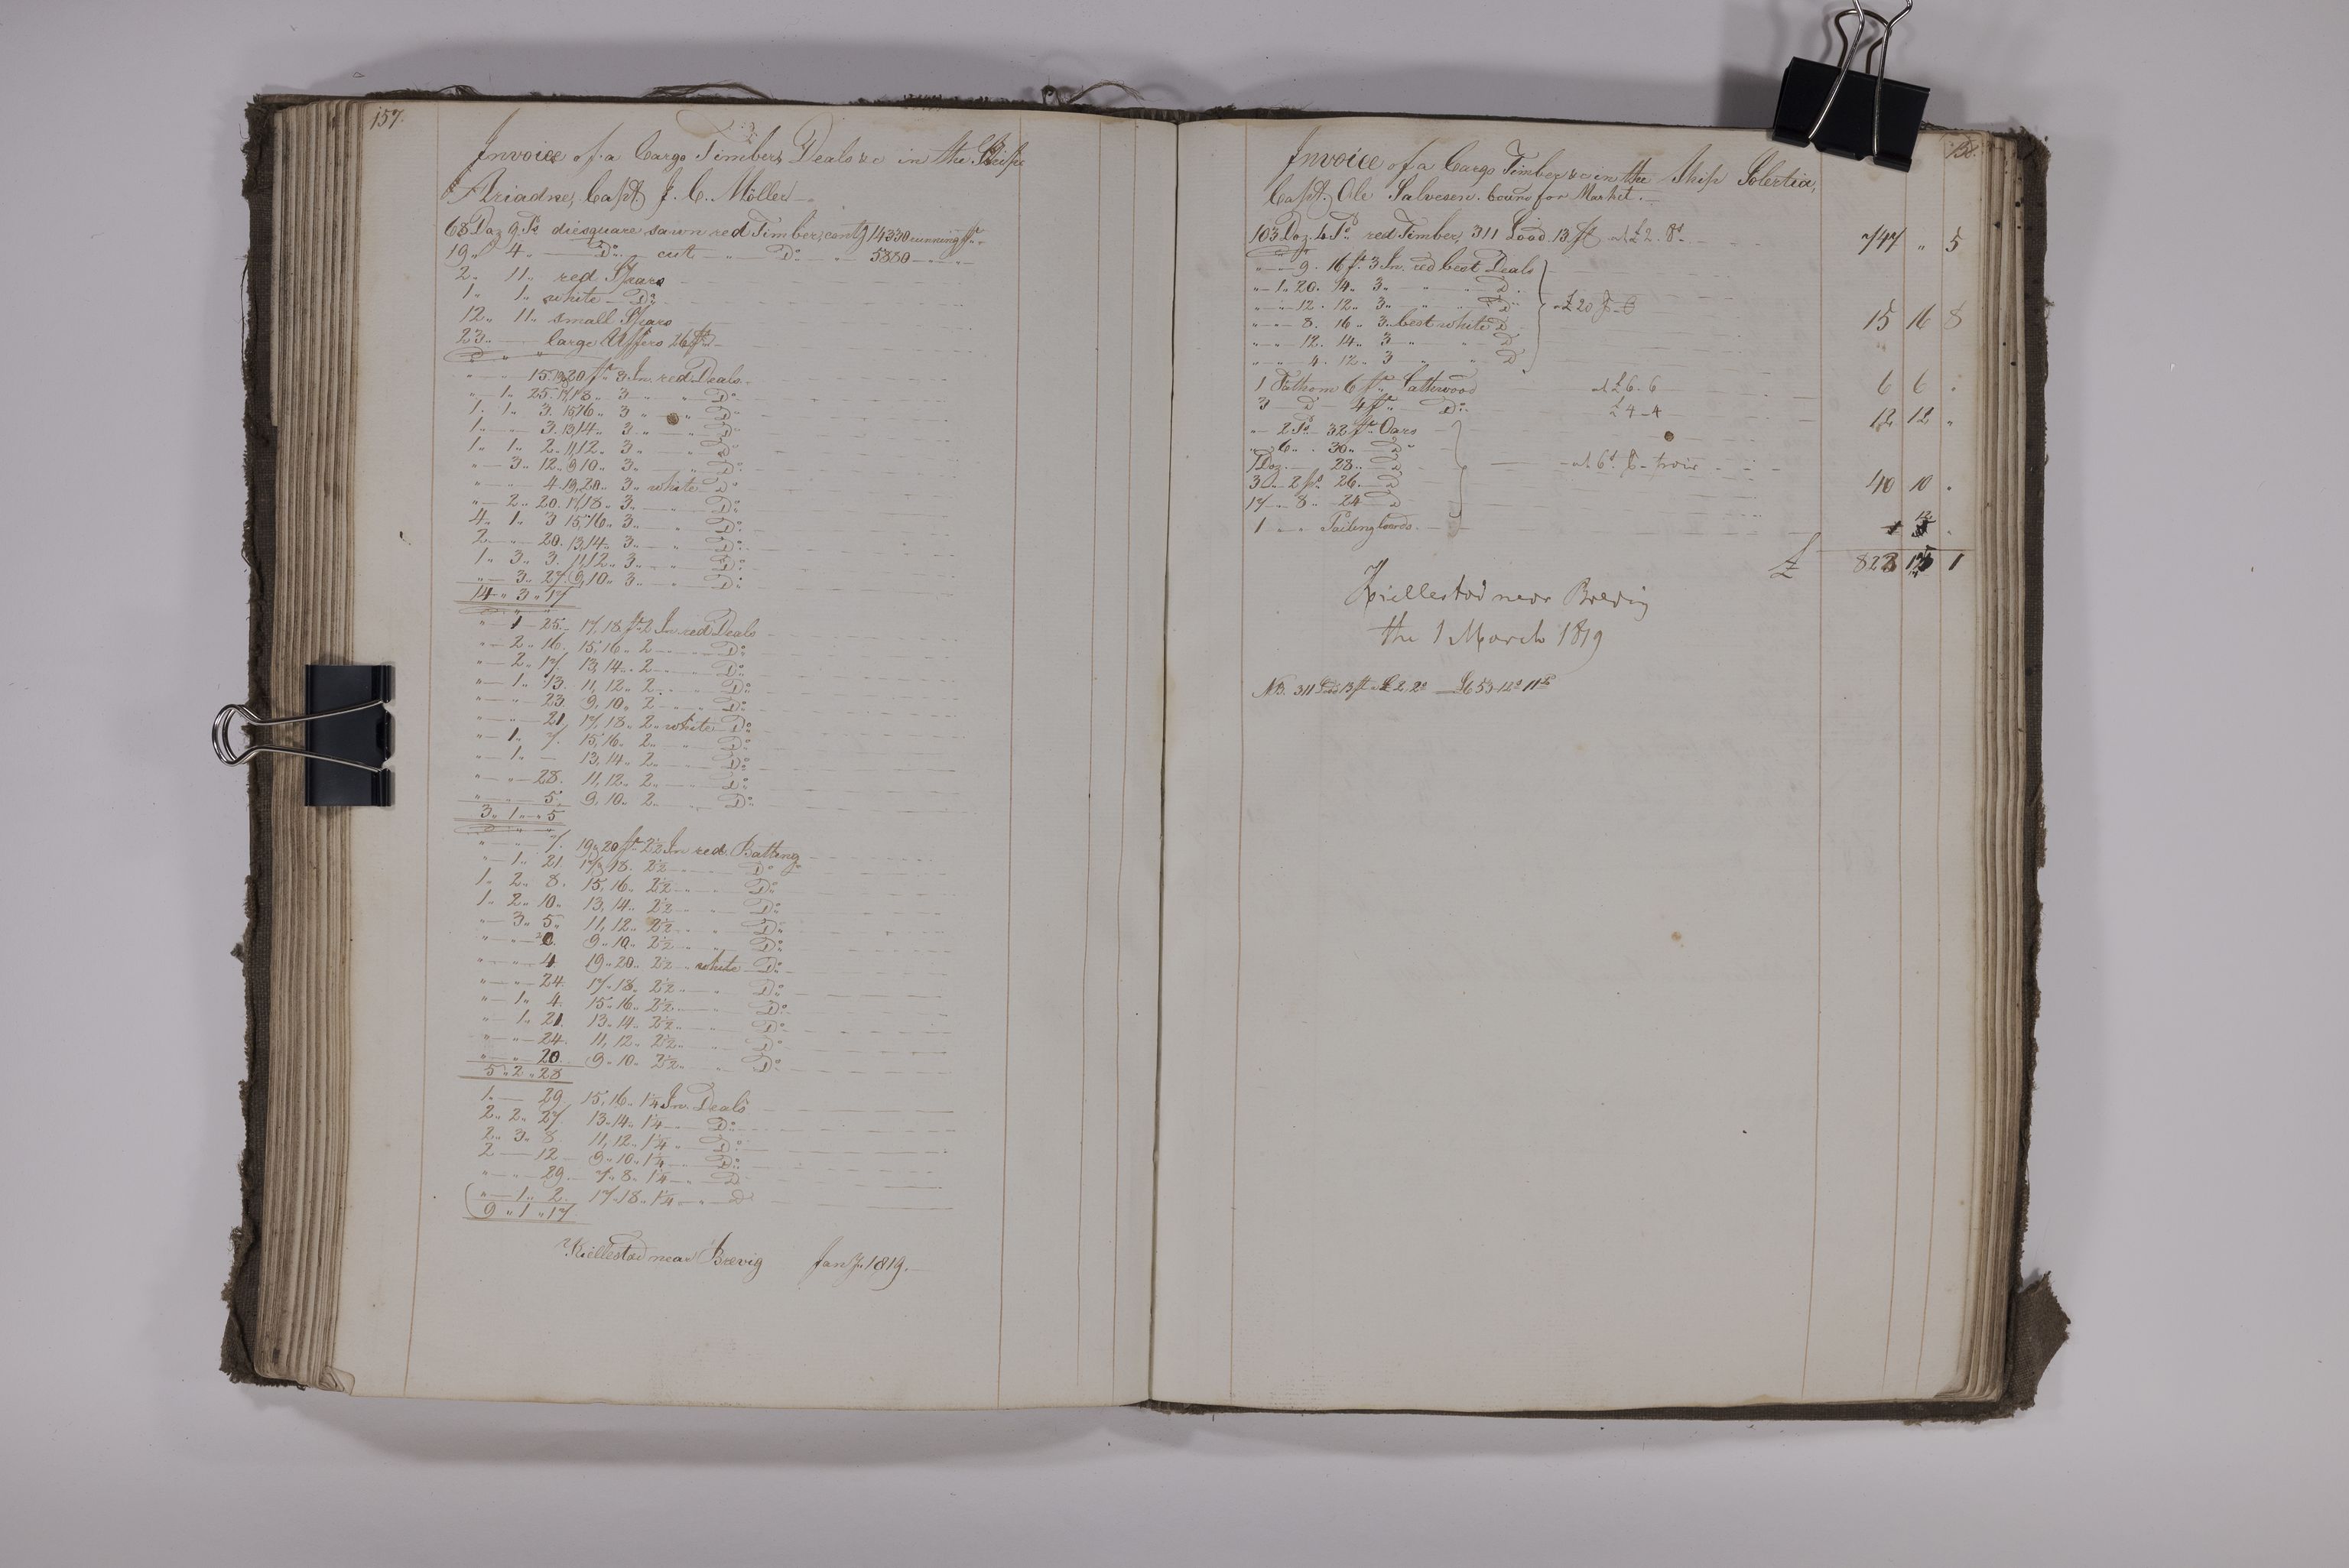 157.
Invoice of a Cargo Timber, Deals &c in the Ship
Ariadne, Capt. J. C. Möller
68 Doz 9 Ps diesquare sawn red Timber, contg 14330 running ft
19 " 4 " Do cut " Do " 5880
2 " 11 " red Spars
1 " 1 " white Do
12 " 11 " small Spars
23 " large 26 ft
" " 15. 19,20 ft 3 In red Deals
" 1 " 25. 17,18 " 3 " " Do
1 " 1 " 3. 15,16 " 3 " " Do
1 " " 3. 13,14 " 3 " " Do
1 " 1 " 2 " 11,12 " 3 " " Do
" 3 " 12 " 9,10 " 3 " " Do
" " 4. 19,20 " 3 " white Do
" 2 " 20. 17,18 " 3 " " Do
4 " 1 " 3 15,16 " 3 " " Do
2 " " 20. 13,14 " 3 " " Do
1 " 3 " 3. 11,12 " 3 " " Do
" 3 " 27. 9,10 " 3 " " Do
14 " 3 " 17
" 1 " 25. 17,18 ft 2 In red Deals
" 2 " 16. 15,16 " 2 " Do
" 2 " 17. 13,14 " 2 " Do
" 1 " 13. 11,12 " 2 " Do
" " 23. 9,10 " 2 " Do
" " 21. 17,18 " 2 " white Do
" 1 " 7. 15,16 " 2 " " Do
" 1 " — 13,14 " 2 " Do
" " 28. 11,12 " 2 " Do
" " 5. 9,10 " 2 " Do
3 " 1 " 5
" " 7. 19,20 ft 2½ In red Batting
" 1 " 21. 17,18 " 2½ " Do
1 " 2 " 8. 15,16 " 2½ " " Do
1 " 2 " 10 " 13,14 " 2½ " " Do
" 3 " 5 " 11,12 " 2½ " " Do
" " 9 " 10 " 2½ " " Do
" " 4 19 " 20 " 2½ " white Do
" " 24. 17 " 18 " 2½ " " Do
" 1 " 4. 15 " 16 " 2½ " " Do
" 1 " 21. 13 " 14 " 2½ " " Do
" " 24. 11,12 " 2½ " " Do
" " 20. 9 " 10 " 2½ " " Do
5 " 2 " 28
1 " 29 15,16 " 1¼ In. Deals
2 " 2 " 27. 13 " 14 " 1¼ " Do
2 " 3 " 8. 11,12 " 1¼ " Do
2 — 12 9 " 10 " 1¼ " Do
" " 29. 7 " 8 " 1¼ " D
" 1 " 2. 17 " 18 " 1¼ " D
9 " 1 " 17
Kiellestad near Brevig Jany 1819.
158.
Invoice of a Cargo Timber &c in the Ship Solertia,
Capt. Ole Salvesen. bound for Market.
103 Doz. 4 Ps red Timber, 311 Load 13 ft at £2. 8s 747 " 5
" " 9. 16 ft 3 In. red best Deals
" 1. 20. 14 " 3 " " D
" " 12. 12 " 3 " " D at £20
" " 8. 16 " 3 " best white D 15 16 8
" " 12. 14 " 3 " " D
" " 4. 12 " 3 " " D
1 Fathom 6 ft Lathwood at £6. 6 6 6 "
3 D 4 ft Do £4 - 4 12 12 "
" 2 Ps 32 ft Oars
" 6 " 30 " D
1 Doz 28 " D at 6d
3 " 2 ps 26 " D 40 10 "
17 " 8 " 24 D
1 " " Pailing boards 12
£ 1
Kiellestad near Brevig
the 1 March 1819
NB. 311 Load 13 ft at £2. 2s £653-12s 11d